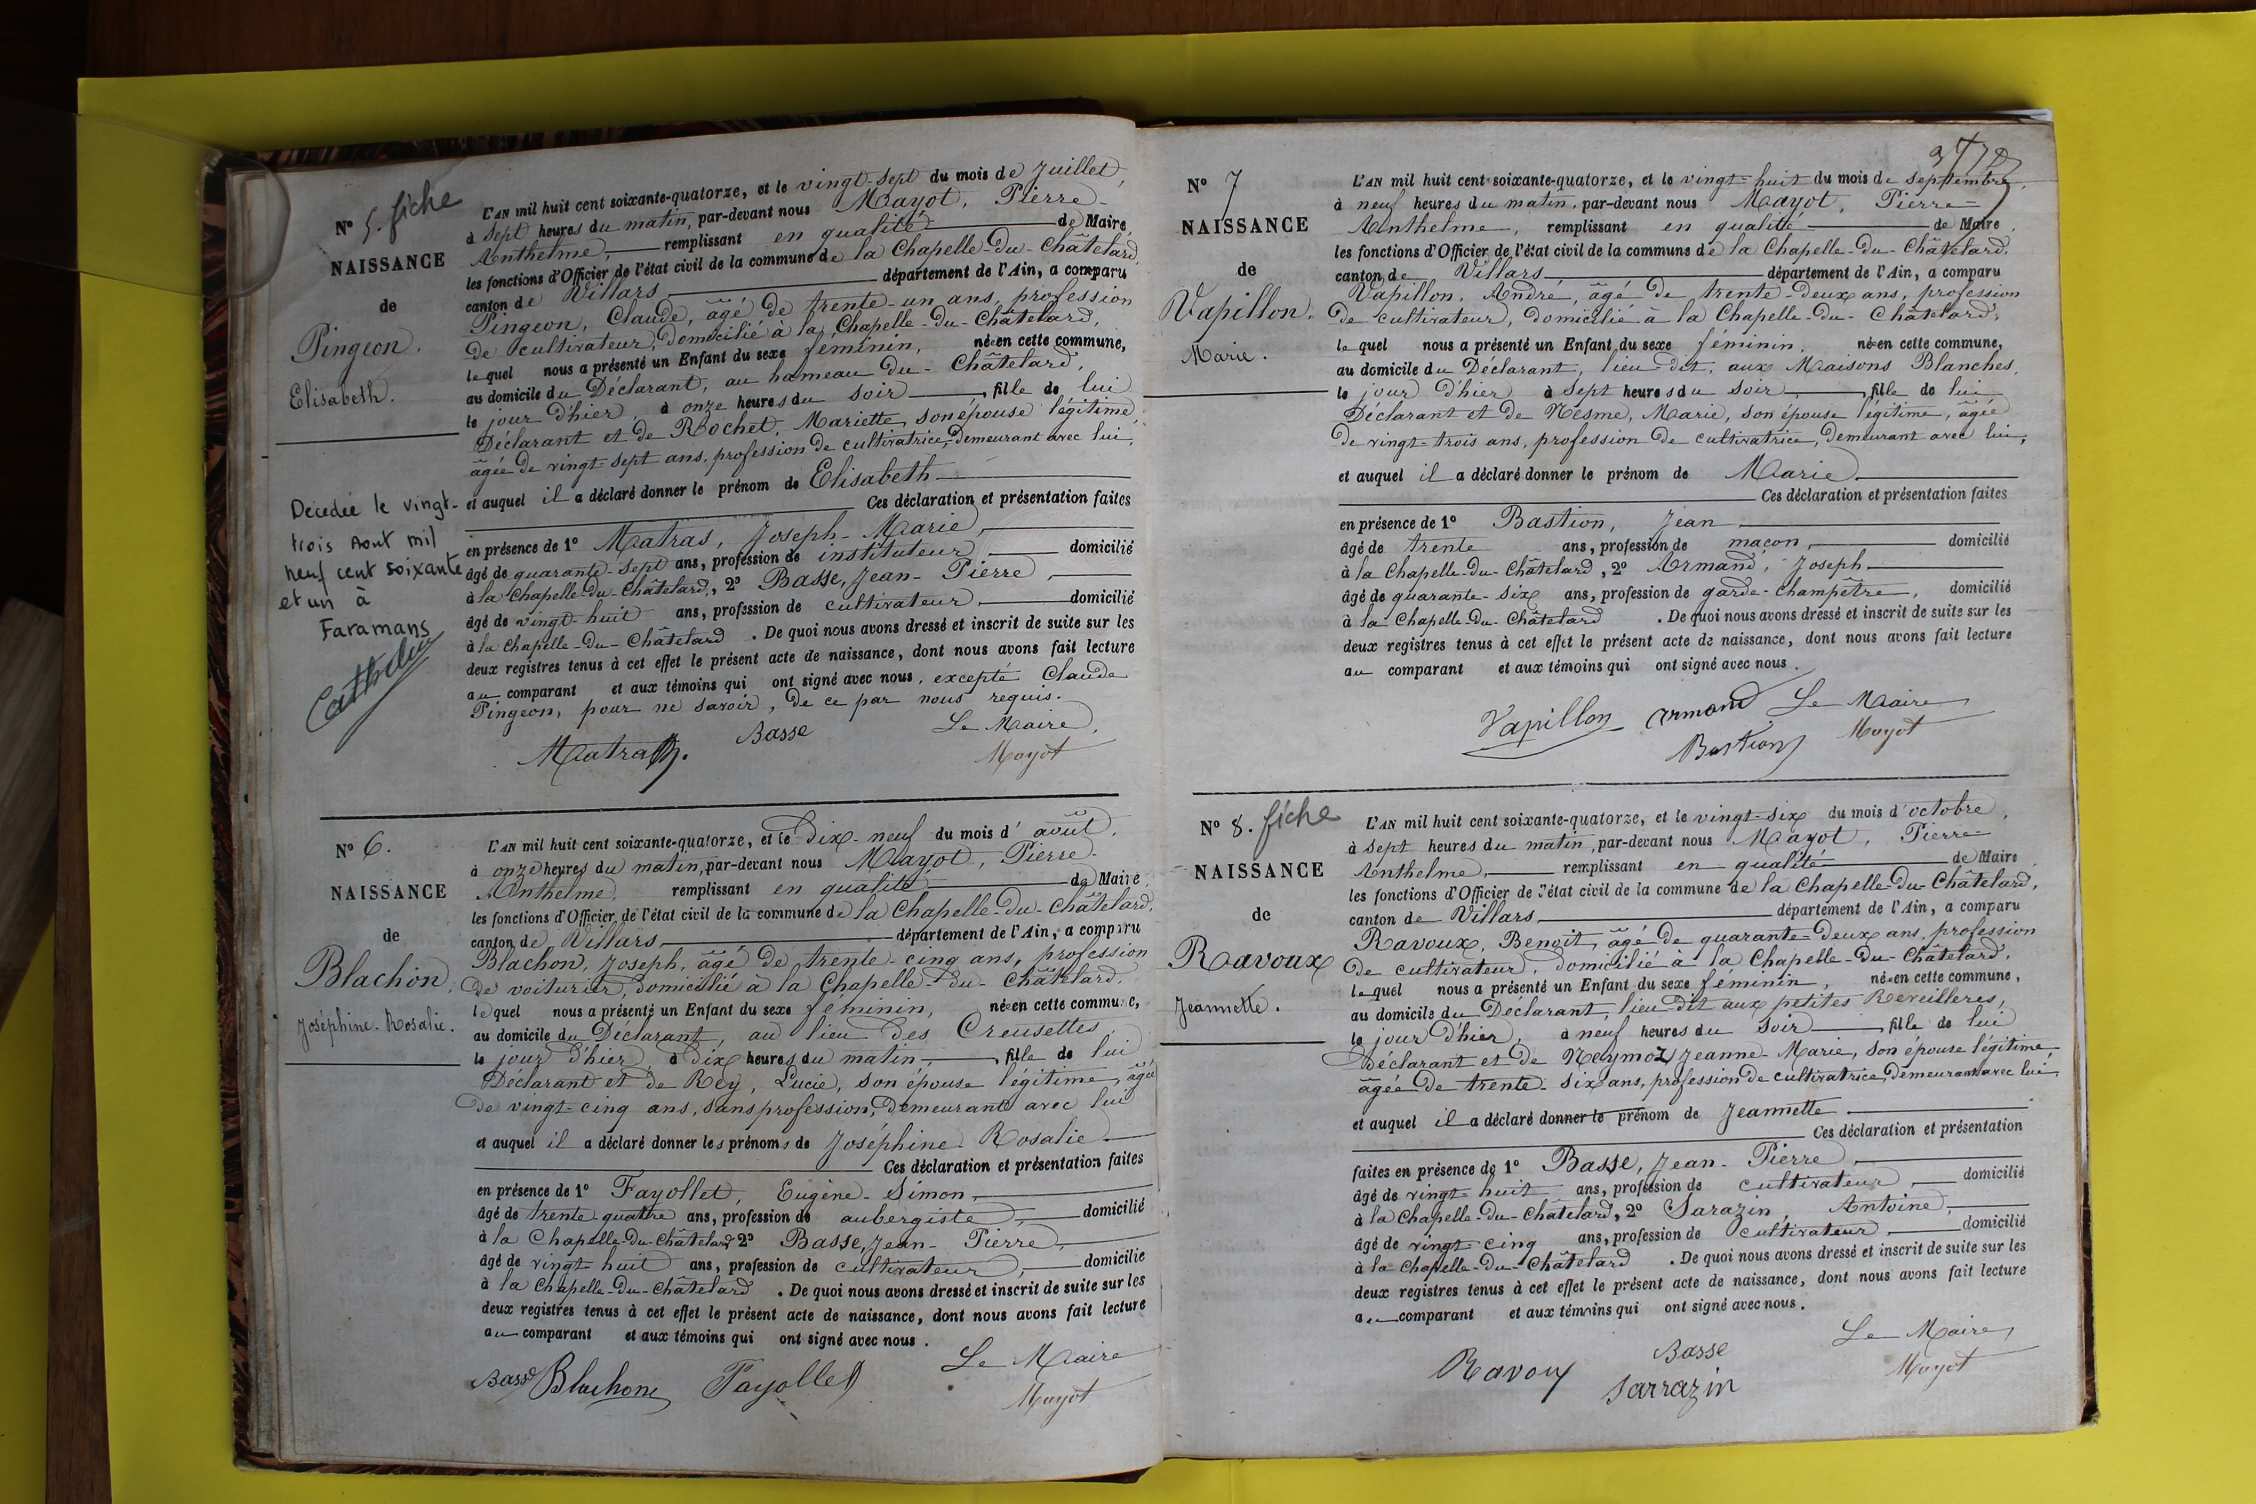 Nº 5. fiche
NAISSANCE
de
Pingeon.
Elisabeth.
Décédée le vingt-
trois Aout mil
neuf cent soixante
et un à
Faramans
L'AN mil huit cent soixante-quatorze, et le vingt-sept du mois de Juillet,
à sept heures du matin, par-devant nous Mayot, Pierre-
Anthelme, remplissant en qualité de Maire,
les fonctions d'Officier de l'état civil de la commune de la Chapelle-du-Châtelard,
canton de Villars département de l'Ain, a comparu
Pingeon, Claude, âgé de trente-un ans, profession
de cultivateur, domicilié à la Chapelle-du-Châtelard,
lequel nous a présenté un Enfant du sexe féminin, né en cette commune,
au domicile du Déclarant, au hameau du Châtelard,
le jour d'hier, à onze heures du soir, fille de lui
Déclarant et de Rochet, Mariette, son épouse légitime,
âgée de vingt-sept ans, profession de cultivatrice, demeurant avec lui,
et auquel il a déclaré donner le prénom de Elisabeth
Ces déclaration et présentation faites
en présence de 1º Matras, Joseph-Marie,
âgé de quarante-sept ans, profession de instituteur, domicilié
à la Chapelle-du-Châtelard, 2º Basse, Jean-Pierre,
âgé de vingt-huit ans, profession de cultivateur, domicilié
à la Chapelle-du-Châtelard. De quoi nous avons dressé et inscrit de suite sur les
deux registres tenus à cet effet le présent acte de naissance, dont nous avons fait lecture
au comparant et aux témoins qui ont signé avec nous, excepté Claude
Pingeon, pour ne savoir, de ce par nous requis.
Matras. Basse Le Maire,
Mayot
Nº 6.
NAISSANCE
de
Blachon,
Joséphine-Rosalie.
L'AN mil huit cent soixante-quatorze, et le Dix-neuf du mois d'août,
à onze heures du matin, par-devant nous Mayot, Pierre-
Anthelme, remplissant en qualité de Maire,
les fonctions d'Officier de l'état civil de la commune de la Chapelle-du-Châtelard,
canton de Villars département de l'Ain, a comparu
Blachon, Joseph, âgé de trente-cinq ans, profession
de voiturier, domicilié à la Chapelle-du-Châtelard,
lequel nous a présenté un Enfant du sexe féminin, né en cette commune,
au domicile du Déclarant, au lieu des Creusettes,
le jour d'hier, à dix heures du matin, fille de lui
Déclarant et de Rey, Lucie, son épouse légitime, âgée
de vingt-cinq ans, sans profession, demeurant avec lui
et auquel il a déclaré donner les prénoms de Joséphine-Rosalie
Ces déclaration et présentation faites
en présence de 1º Fayollet, Eugène-Simon,
âgé de trente-quatre ans, profession de aubergiste, domicilié
à la Chapelle-du-Châtelard 2º Basse, Jean-Pierre,
âgé de vingt-huit ans, profession de cultivateur, domicilié
à la Chapelle-du-Châtelard. De quoi nous avons dressé et inscrit de suite sur les
deux registres tenus à cet effet le présent acte de naissance, dont nous avons fait lecture
au comparant et aux témoins qui ont signé avec nous.
Basse Blachon Fayollet Le Maire
Mayot
Nº 7
NAISSANCE
de
Vapillon.
Marie.
L'AN mil huit cent soixante-quatorze, et le vingt-huit du mois de septembre,
à neuf heures du matin, par-devant nous Mayot, Pierre-
Anthelme, remplissant en qualité de Maire,
les fonctions d'Officier de l'état civil de la commune de la Chapelle-du-Châtelard,
canton de Villars département de l'Ain, a comparu
Vapillon, André, âgé de trente-deux ans, profession
de cultivateur, domicilié à la Chapelle-du-Châtelard,
lequel nous a présenté un Enfant du sexe féminin, né en cette commune,
au domicile du Déclarant, lieu dit aux Maisons Blanches,
le jour d'hier à sept heures du soir, fille de lui
Déclarant et de Nesme, Marie, son épouse légitime, âgée
de vingt-trois ans, profession de cultivatrice, demeurant avec lui,
et auquel il a déclaré donner le prénom de Marie
Ces déclaration et présentation faites
en présence de 1º Bastion, Jean
âgé de trente ans, profession de maçon, domicilié
à la Chapelle-du-Châtelard, 2º Armand, Joseph
âgé de quarante-six ans, profession de garde-champêtre, domicilié
à la Chapelle-du-Châtelard. De quoi nous avons dressé et inscrit de suite sur les
deux registres tenus à cet effet le présent acte de naissance, dont nous avons fait lecture
au comparant et aux témoins qui ont signé avec nous.
Vapillon Armand Le Maire
Bastion Mayot
Nº 8. fiche
NAISSANCE
de
Ravoux
Jeannette.
L'AN mil huit cent soixante-quatorze, et le vingt-six du mois d'octobre,
à sept heures du matin, par-devant nous Mayot, Pierre-
Anthelme, remplissant en qualité de Maire
les fonctions d'Officier de l'état civil de la commune de la Chapelle-du-Châtelard,
canton de Villars département de l'Ain, a comparu
Ravoux, Benoît, âgé de quarante-deux ans, profession
de cultivateur, domicilié à la Chapelle-du-Châtelard,
lequel nous a présenté un Enfant du sexe féminin, né en cette commune,
au domicile du Déclarant, lieu dit aux petites Reveilleres,
le jour d'hier, à neuf heures du soir, fille de lui
Déclarant et de Neymoz Jeanne-Marie, son épouse légitime,
âgée de trente-six ans, profession de cultivatrice, demeurant avec lui,
et auquel il a déclaré donner le prénom de Jeannette
Ces déclaration et présentation
faites en présence de 1º Basse, Jean-Pierre,
âgé de vingt-huit ans, profession de cultivateur, domicilié
à la Chapelle-du-Châtelard, 2º Sarazin, Antoine,
âgé de vingt-cinq ans, profession de cultivateur, domicilié
à la Chapelle-du-Châtelard. De quoi nous avons dressé et inscrit de suite sur les
deux registres tenus à cet effet le présent acte de naissance, dont nous avons fait lecture
au comparant et aux témoins qui ont signé avec nous.
Ravoux Basse Le Maire
Sarrazin Mayot